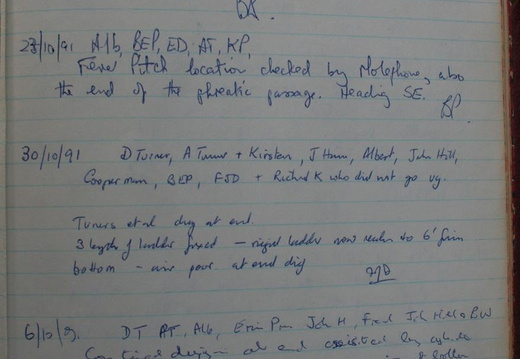 23/10/91 Alb, BEP, ED, AT, KP,
Fever Pitch location checked by Molephone, also
the end of the phreatic passage. Heading SE.
BP
30/10/91 D Turner, A Turner + Kirsten, J Hann, Albert, John Hill,
Cooperman, BEP, + Richard K who did not go ug.
Turners et al dig at end
3 lengths of ladder fixed — rigid ladder now reaches to 6' from
bottom - air poor at end dig
6/10/91 DT AT, Alb, John H, &
at end assisted by